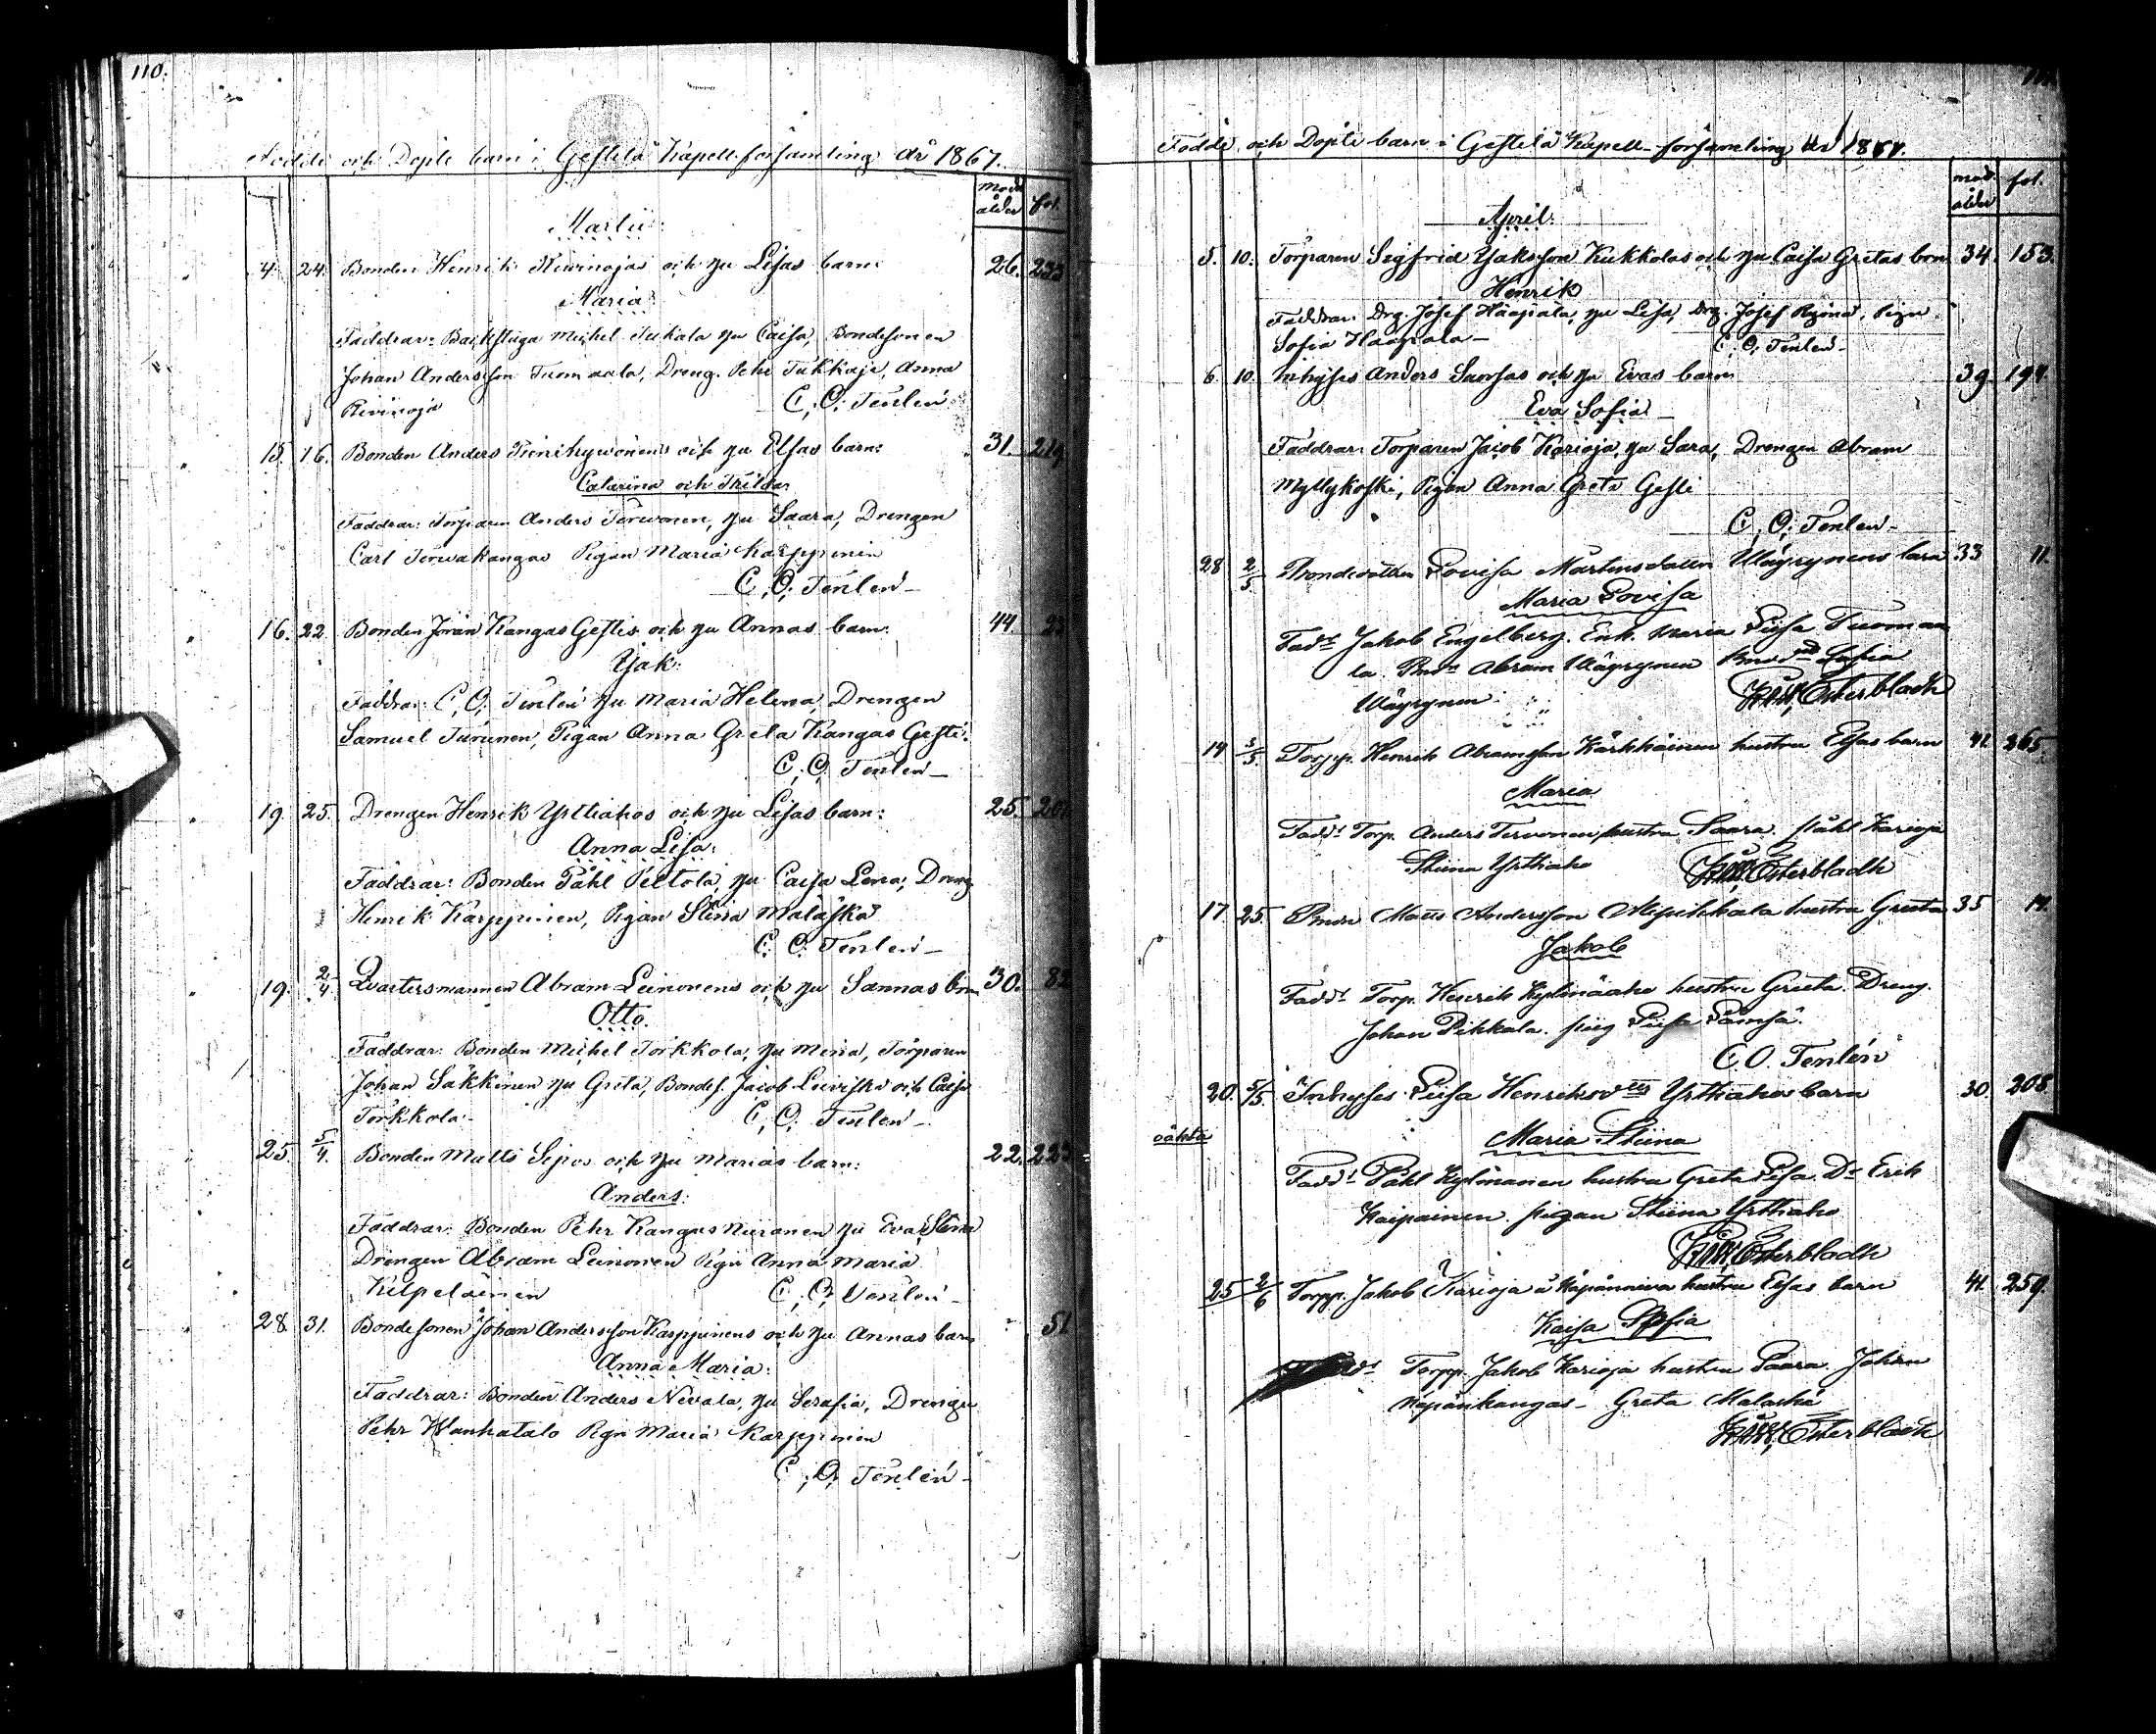 110.
Födde och Döpte barn i Gestilä Kapell-församling År 1867.
mod. ålder fol.
Martii:
4. 24. Bonden Henrik Kiwinojas och hu Lisas barn: 26. 233
Maria:
Faddrar: Backstuga Michel Tuckala hu Caisa, Bondesonen
Johan Andersson Tuomaala, Dreng. Pehr Tukkaja, Anna
Kivinoja C. O. Tenlén
15. 16. Bonden Anders och hu Elsas barn: 31. 219
Catarina och Thilda:
Faddrar: Torparen Anders Terwonen, hu Saara, Drengen
Carl Terwakangas Pigan Maria Karppinen
C. O. Tenlén
16. 22. Bonden Jöran Kangas Gestis och hu Annas barn: 44. 23
Isak:
Faddrar: C. O. Tenlén hu Maria Helena, Drengen
Samuel Turunen, Pigan Anna Greta Kangas Gesti.
C. O. Tenlén
19. 25. Drengen Henrik Yrttiahos och hu Lisas barn: 25. 201
Anna Lisa:
Faddrar: Bonden Påhl Peltola, hu Caisa Lena, Dreng
Henrik Karppinen, Pigan Stina Malaska
C. O. Tenlén
19. 2/4 Qvartersmannen Abram Leinonens och hu Sannas brn 30. 82
Otto.
Faddrar: Bonden Michel Torkkola, hu Mina, Torparen
Johan Säkkinen hu Greta, Bondes. Jacob Leiviska och Caisa
Torkkola. C. O. Tenlén
25. 5/4. Bonden Matts Sipos och hu Marias barn: 22. 223
Anders:
Faddrar: Bonden Pehr Kangas Niiranen hu Eva Stina
Drengen Abram Leinonen Pign Anna Maria
Kilpeläinen C. O. Tenlén
28. 31. Bondesonen Johan Andersson Karppinens och hu Annas barn 51
Anna Maria:
Faddrar: Bonden Anders Nevala, hu Serafia, Drengn
Pehr Wanhatalo Pign Maria Karppinen
C. O. Tenlén
111.
Födde och Döpte barn i Gestilä Kapell-församling År 1867.
mod. ålder fol.
April:
5. 10. Torparen Sigfrid Isaksson Kukkolas och hu Caisa Gretas brn 34. 153.
Henrik
Faddrar: Drg. Josef Haapala, hu Lisa, Drg. Josef Pign
Sofia Haapala C. O. Tenlén
6. 10. Inhyses Anders och hu Evas barn 39. 194.
Eva Sofia
Faddrar: Torparen Jacob Karioja, hu Sara, Drengen Abram
Myllykoski, Pigan Anna Greta Gesti
C. O. Tenlén
28 2/5. Bondedottren Lovisa Martinsdotter Wäyrynens barn 33 11.
Maria Lovisa
Fadd. Jakob Engelberg. Enk. Maria Liisa Tuomaa
la Abram Wäyrynen Sofia
Wäyrynen Österbladh
14 5/5. Torpp. Henrik Abramsson Kärkkäinen hustru Elsas barn 41. 265.
Maria
Fadd. Torp. Anders Tervonen hustru Saara. Påhl Karioja
Stiina Yrttiaho Österbladh
17. 25. Matts Andersson Alipihkala hustru Greeta 35 14.
Jakob
Fadd. Torp. Henrik Kylmäaho hustru Greeta. Dreng.
Johan Pihkala. pig Liisa Lämsä.
C. O. Tenlén
20. 5/5. Inhyses Liisa Henriksdtr Yrttiahos barn 30. 208.
oäkta
Maria Stiina
Fadd. Påhl Kylmänen hustru Greta Lisa. Dr Erik
Kaipainen. pigan Stiina Yrttiaho
Österbladh
25 2/6 Torpp. Jakob Karioja hustru Elsas barn 41. 259.
Kaisa Sofia
Torpp. Jakob Karioja hustru Saara. Johan
Näpänkangas - Greta Malaska
Österbladh